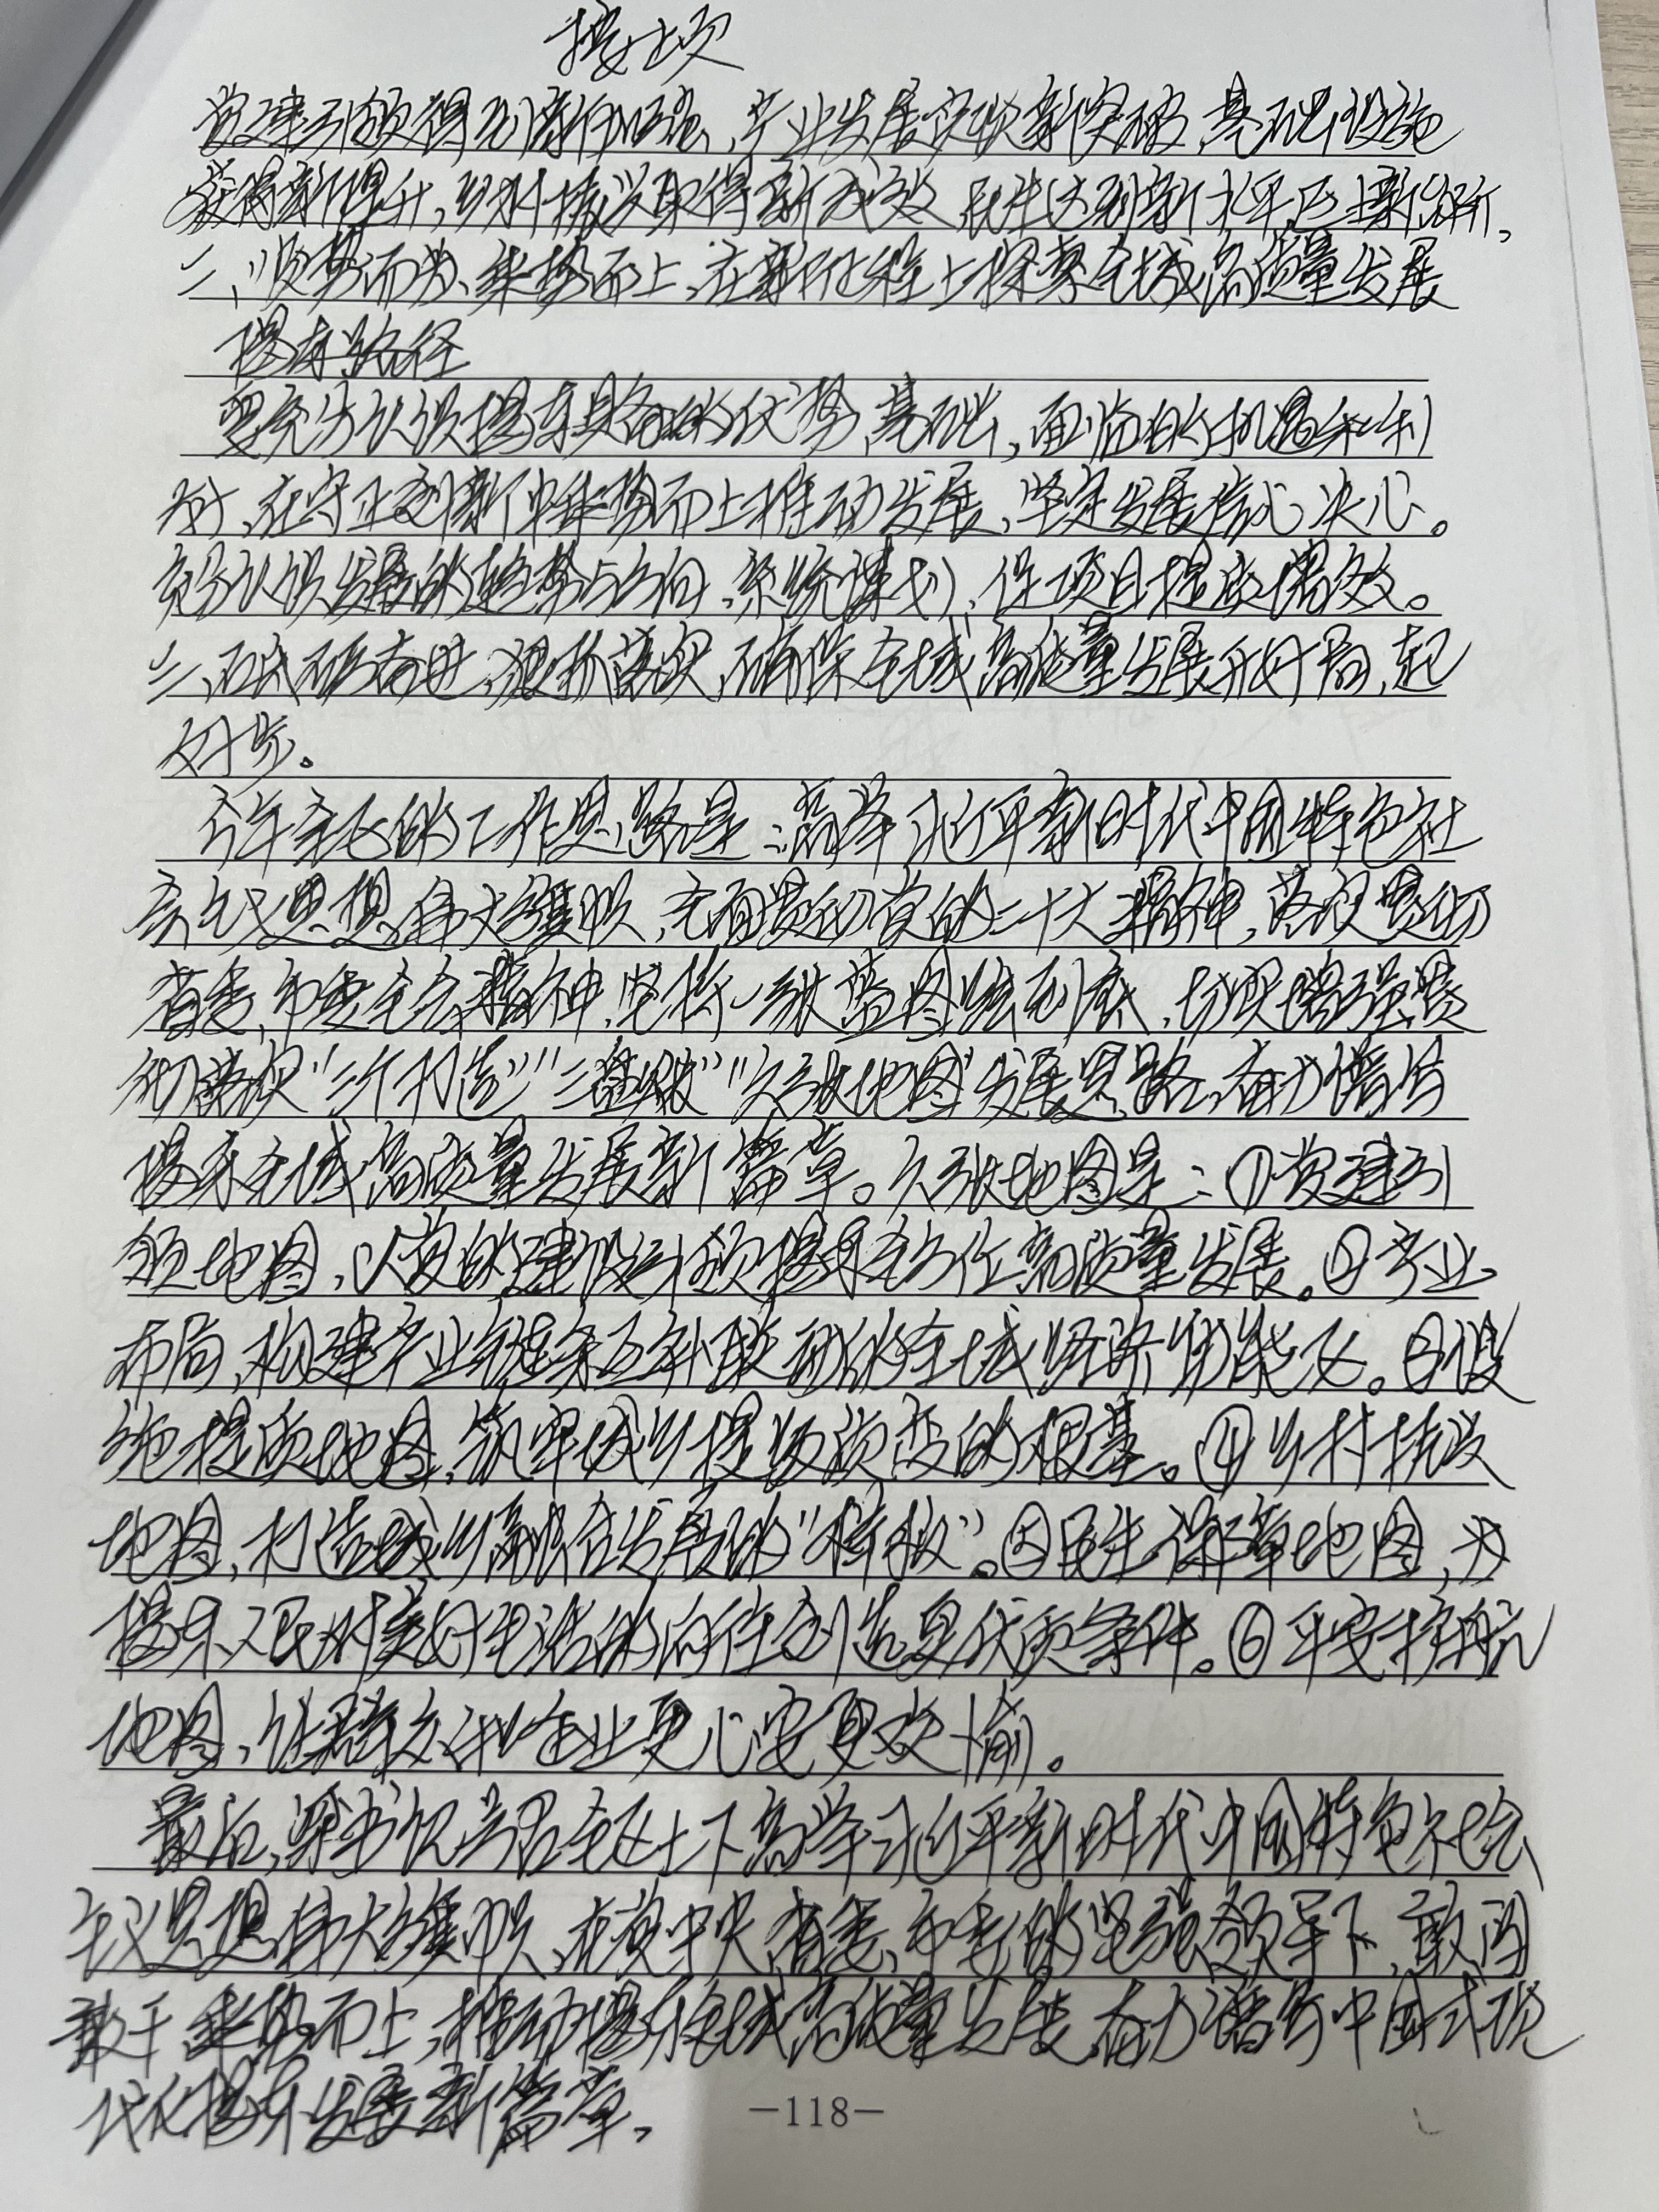 接上次
党建引领得到新加强、产业发展实现新突破、基础设施
获得新提升,乡村振兴取得新成效、民生达到新水平、
二、顺势而为、乘势而上、在新征程上探索全域高质量发展
揭东路径
要充分认识揭东具备的优势、基础,面临的机遇和利
好、在守正创新中乘势而上推动发展、坚定发展信心、决心。
充分认识发展的趋势与方向、系统谋划、促项目提效。
三、 狠抓落实、确保全域高质量发展开好局、起
好步。
今年全区的工作思路是:高举习近平新时代中国特色社
会主义思想伟大旗帜,全面贯彻党的二十大精神,落实贯彻
省委、市委全会精神,坚持一张蓝图绘到底,切实增强贯
彻落实“三个打造”“三 ”“六张地图”发展思路、奋力谱写
揭东全域高质量发展新篇章。六张地图是:①党建引
领地图,以党的建设引领揭东全方位高质量发展。②产业
布局,构建产业链条互补联动的全域经济功能区。③设
施提质地图,筑牢城乡提级 的根基。④乡村振兴
地图,打造城乡融合发展的“样板”。⑤民生保障地图,为
揭东人民对美好生活的向往创造更优质条件。⑥平安护航
地图、让群众和企业更心安更 。
最后,梁书记号召全区上下高举习近平新时代中国特色社会
主义思想伟大旗帜、在党中央、省委、市委的坚强领导下、敢闯
敢干、乘势而上,推动揭东全域高质量发展、奋力谱写中国式现
代化揭东发展新篇章。
—118—